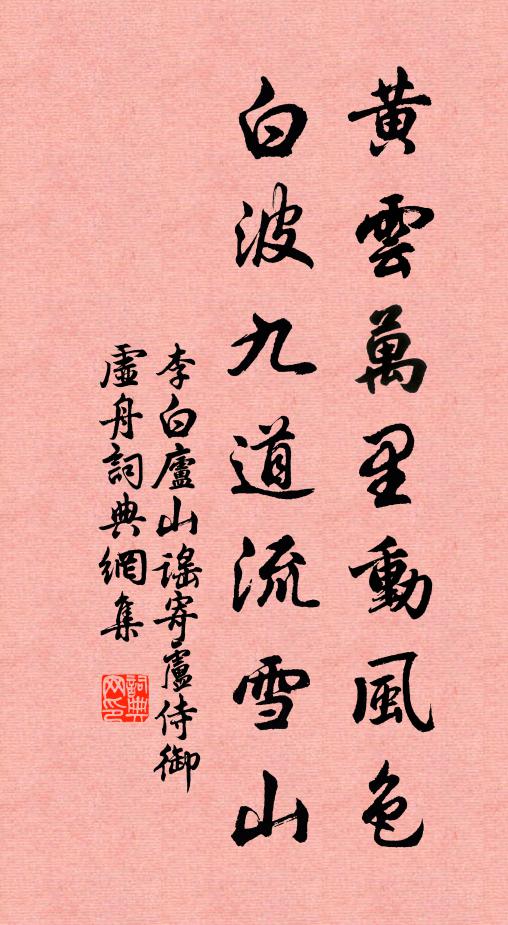 黃雲萬里動風色
白波九道流雪山
李白廬山謠寄盧侍御
虛舟詞典網集
詞典網印